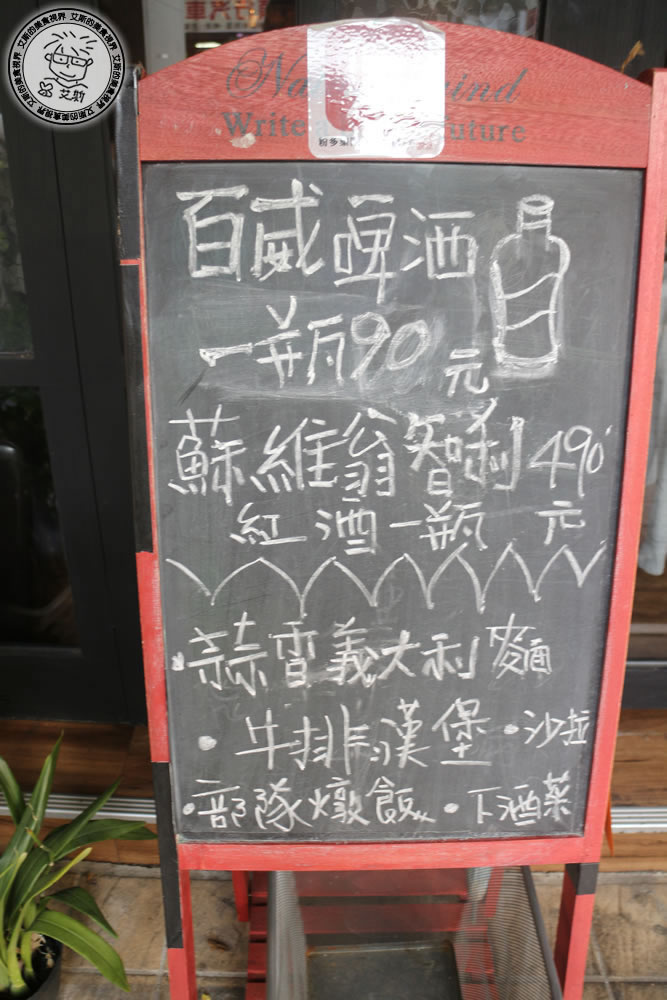 艾斯的美食視界 艾斯的美食視界
艾斯
車汽
Write
uture
百威啤酒
一瓶90元
蘇維翁智利490元
紅酒一瓶
·蒜香義大利麵
·牛排漢堡·沙拉
·部隊燉飯·下酒菜